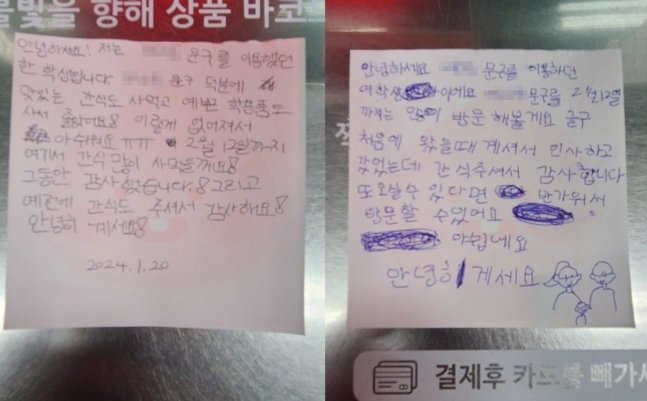 불빛을 향해 상품 바코
안녕하세요! 저는 문구를 이용했던
한 학생입니다 문구 덕분에
맛있는 간식도 사먹고 예쁜 학용품도
사서 좋았어요! 이렇게 없어져서
아쉬워요 ㅠㅠ 2월 12일까지
여기서 간식 많이 사먹을게요!
그동안 감사했습니다! 그리고
예전에 간식도 주셔서 감사해요!
안녕히 계세요!
2024.1.20
안녕하세요 문구를 이용하던
여학생 이에요 문구를 2월12일
까지는 많이 방문 해볼게요 문구
처음에 왔을때 계셔서 인사하고
갔었는데 간식주셔서 감사합니다
또 오실수 있다면 반가워서
방문할 수있어요
아쉽네요
안녕히 계세요
결제후 카드를 빼가세